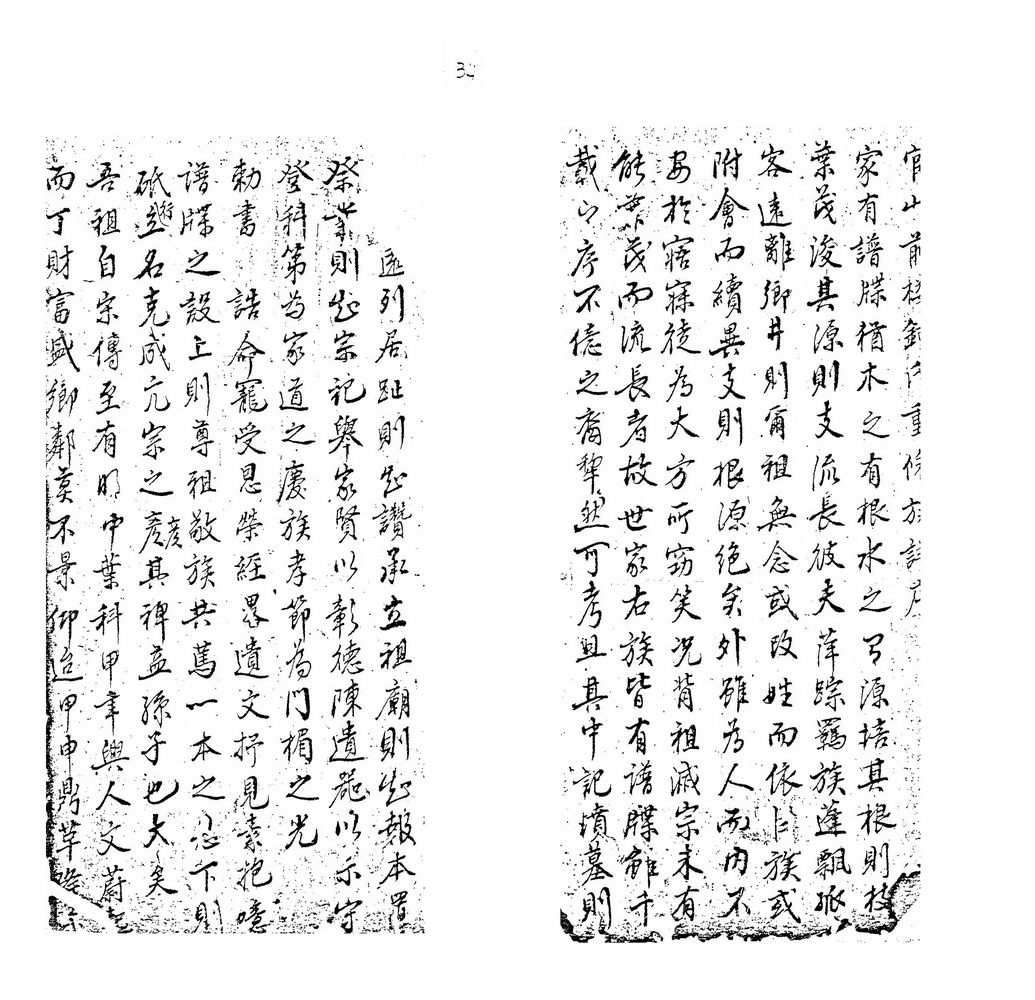 3
家有譜牒猶木之有根水之有源培其根則枝
葉茂浚其源則支流長彼夫萍踪羈族蓬飄孤
客遠離鄉井則甯祖無念或改姓而依族或
附會而續異支則根源絕矣外雖為人而內不
安於寤寐徒為大方所竊笑况背祖滅宗未有
能葉茂而流長者故世家右族皆有譜牒雖千
載以序不億之裔犂然可考且其中記墳墓則
列居趾則起讚承立祖廟則起報本置
祭業則起宗記舉家賢以彰德陳遺器以示守
登科第為家道之慶族孝節為門楣之光
勅書 誥命寵受恩榮經畧遺文抒見素抱
譜牒之設上則尊祖敬族共篤一本之心下則
砥名克成亢宗之彥其裨益孫子也大矣
吾祖自宗傳至有明中葉科甲聿興人文蔚
而丁財富盛鄉鄰莫不景仰迨甲申鼎革